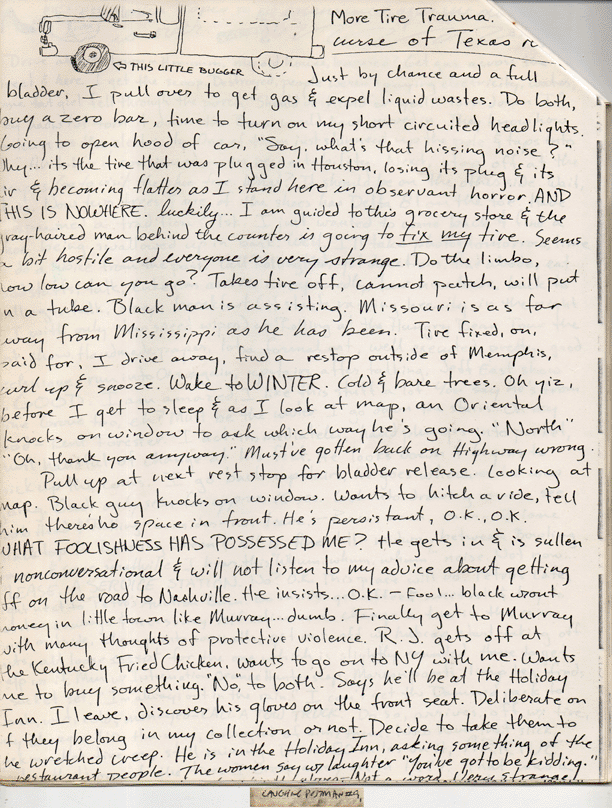 More Tire Trauma.
curse of Texas
THIS LITTLE BUGGER
Just by chance and a full
bladder, I pull over to get gas & expel liquid wastes. Do both,
buy a zero bar, time to turn on my short circuited headlights.
Going to open hood of car, "Say, what's that hissing noise?"
Why... its the tire that was plugged in Houston, losing its plug & its
air & becoming flatter as I stand here in observant horror. AND
THIS IS NOWHERE. luckily... I am guided to this grocery store & the
gray-haired man behind the counter is going to fix my tire. Seems
a bit hostile and everyone is very strange. Do the limbo,
how low can you go? Takes tire off, cannot patch, will put
in a tube. Black man is assisting. Missouri is as far
away from Mississippi as he has been. Tire fixed, on,
paid for, I drive away, find a restop outside of Memphis,
curl up & snooze. Wake to WINTER. Cold & bare trees. Oh yiz,
before I get to sleep & as I look at map, an Oriental
knocks on window to ask which way he's going. "North"
"Oh, thank you anyway." Must've gotten back on Highway wrong.
Pull up at next rest stop for bladder release. Looking at
map. Black guy knocks on window. Wants to hitch a ride, tell
him there's no space in front. He's persistant, O.K., O.K.
WHAT FOOLISHNESS HAS POSSESSED ME? He gets in & is sullen
nonconversational & will not listen to my advice about getting
off on the road to Nashville. He insists... O.K. - Fool... black w/out
money in little town like Murray... dumb. Finally get to Murray
with many thoughts of protective violence. R.J. gets off at
the Kentucky Fried Chicken, wants to go on to NY with me. Wants
me to buy something. "No," to both. Says he'll be at the Holiday
Inn. I leave, discover his gloves on the front seat. Deliberate on
if they belong in my collection or not. Decide to take them to
the wretched creep. He is in the Holiday Inn, asking something of the
restaurant people. The women say w/ laughter "You've got to be kidding."
Not a word. Very strange!
LAUGHING POSTMAN